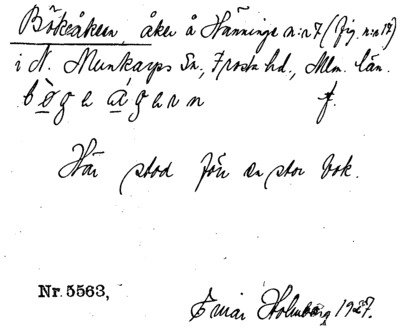 Bökeåkern, åker å Hänninge n:r 7 (fig. n:o 17)
i N. Munkarps Sn., Frosta hd., Mlm. län.
bø̀gɑ ágɑrn f.
Här stod förr en stor bok.
Nr. 5563,
Einar Holmberg 1927.